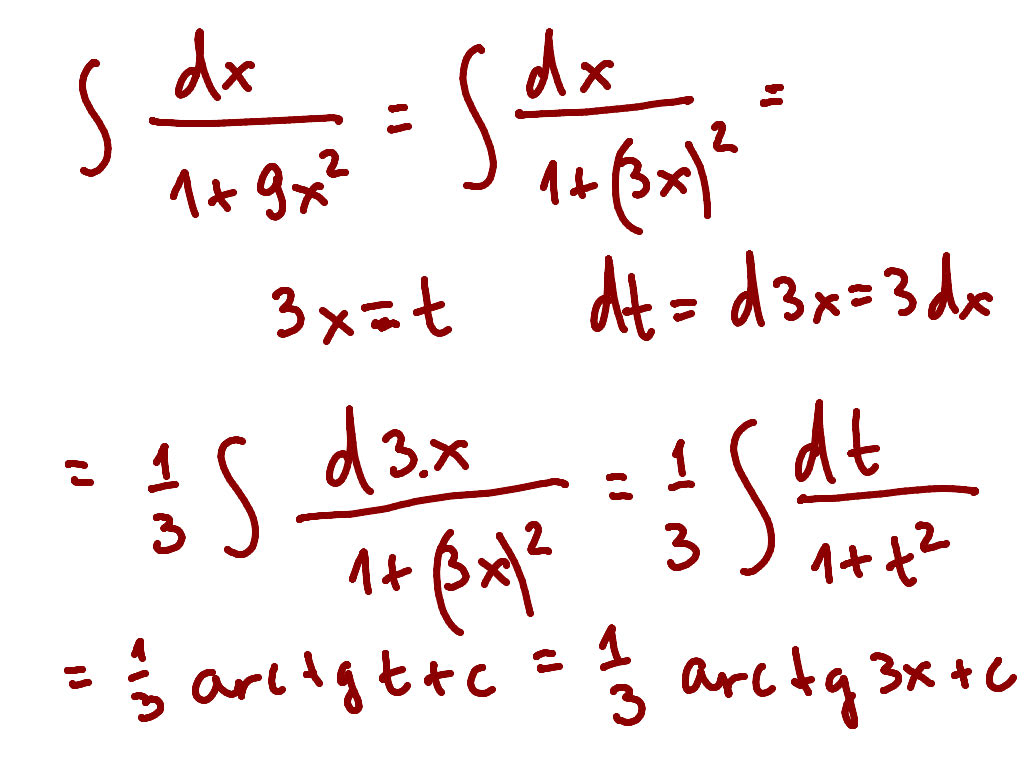 ∫ dx / (1 + 9x²) = ∫ dx / (1 + (3x)²) =
3x = t dt = d3x = 3dx
= 1/3 ∫ d3.x / (1 + (3x)²) = 1/3 ∫ dt / (1 + t²)
= 1/3 arctg t + c = 1/3 arctg 3x + c